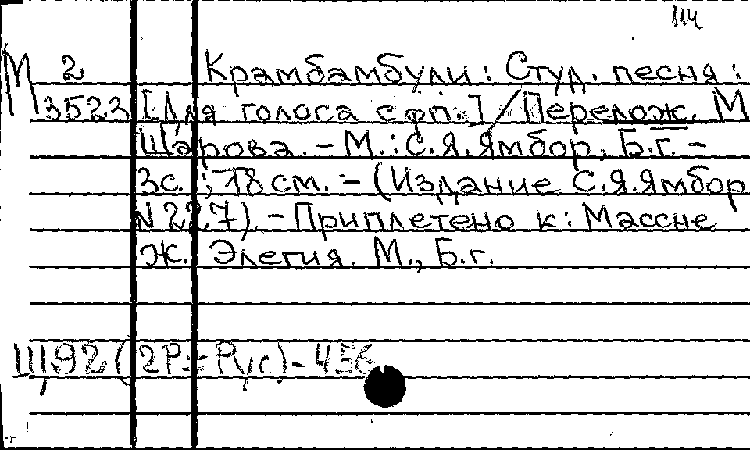 114
М 2 Крамбамбули: Студ. песня:
М 3523 [Для голоса с фп.] / Перелож. М
Шарова. - М.: С.Я. Ямбор, Б.г. -
3с.; 18 см. - (Издание С.Я. Ямбор
N 227). - Приплетено к: Массне
Ж. Элегия. М., Б.г.
Щ92(2Р=Рус)-456